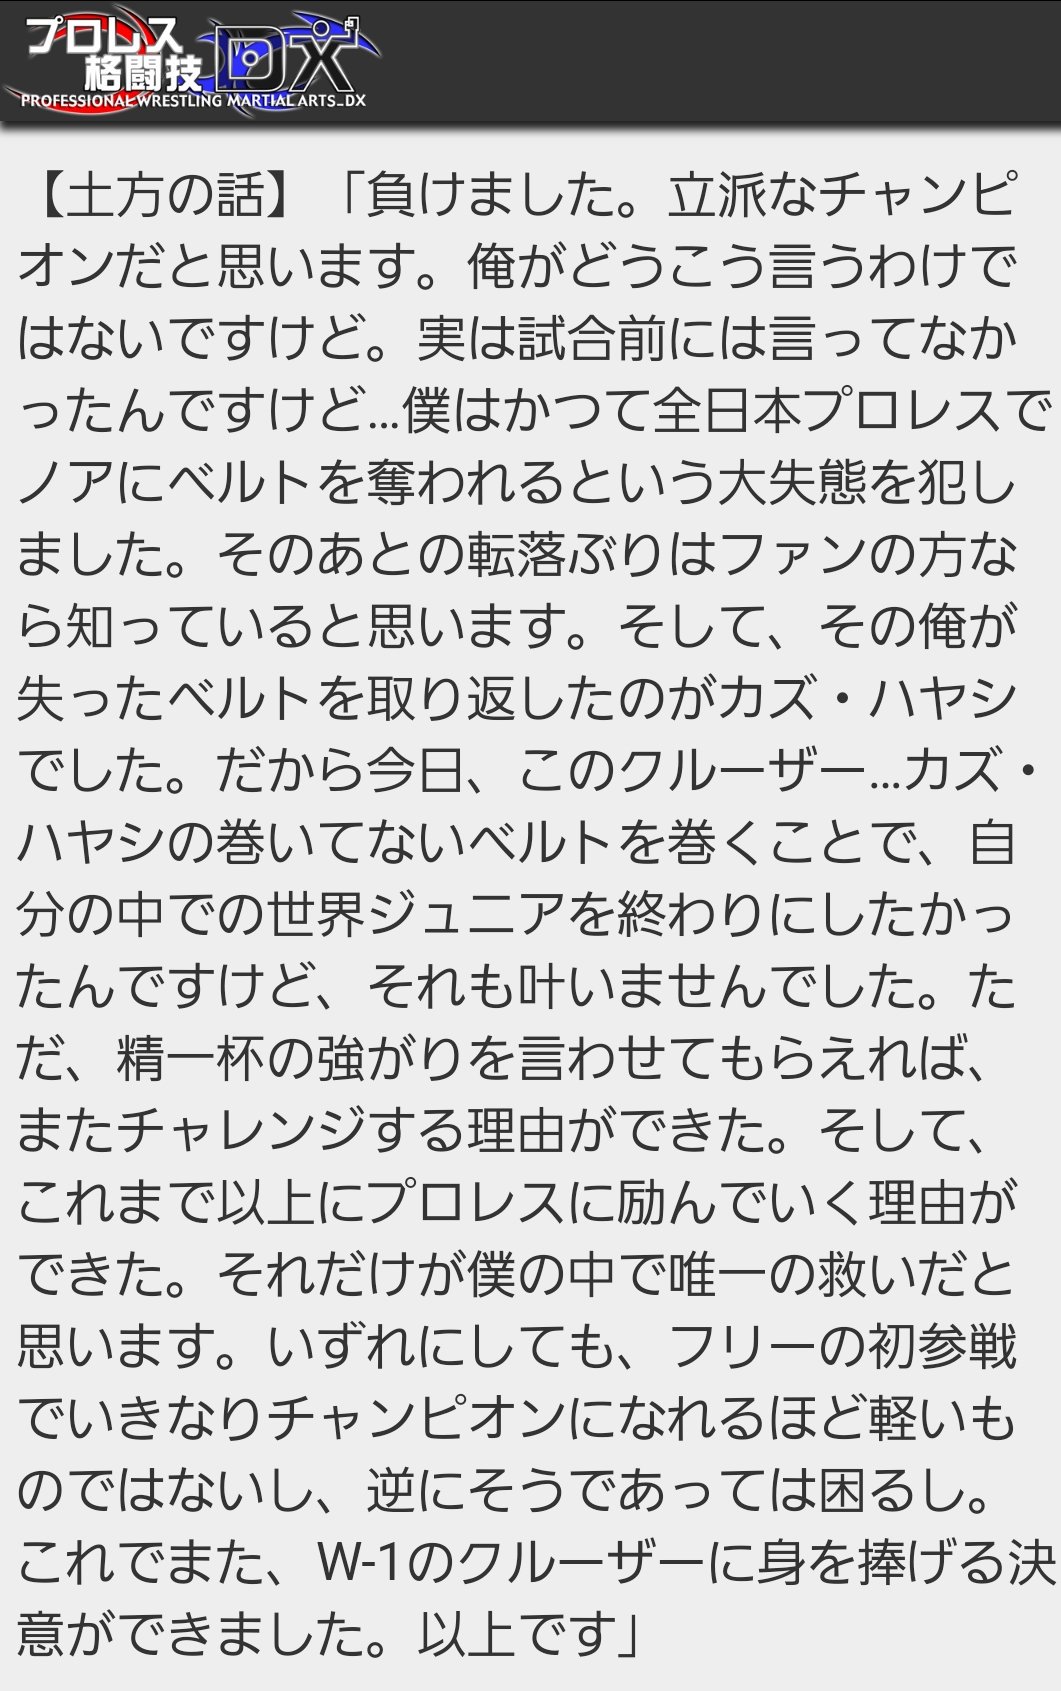 プロレス
格闘技 DX
PROFESSIONAL WRESTLING MARTIAL ARTS_DX
【土方の話】「負けました。立派なチャンピ
オンだと思います。俺がどうこう言うわけで
はないですけど。実は試合前には言ってなか
ったんですけど…僕はかつて全日本プロレスで
ノアにベルトを奪われるという大失態を犯し
ました。そのあとの転落ぶりはファンの方な
ら知っていると思います。そして、その俺が
失ったベルトを取り返したのがカズ・ハヤシ
でした。だから今日、このクルーザー…カズ・
ハヤシの巻いてないベルトを巻くことで、自
分の中での世界ジュニアを終わりにしたかっ
たんですけど、それも叶いませんでした。た
だ、精一杯の強がりを言わせてもらえれば、
またチャレンジする理由ができた。そして、
これまで以上にプロレスに励んでいく理由が
できた。それだけが僕の中で唯一の救いだと
思います。いずれにしても、フリーの初参戦
でいきなりチャンピオンになれるほど軽いも
のではないし、逆にそうであっては困るし。
これでまた、W-1のクルーザーに身を捧げる決
意ができました。以上です」